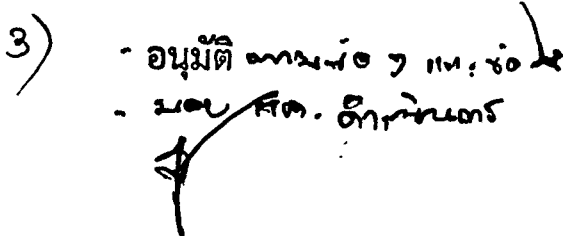 3) - อนุมัติ ตามข้อ ๆ และ ข้อ
- มอบ ดำเนินการ